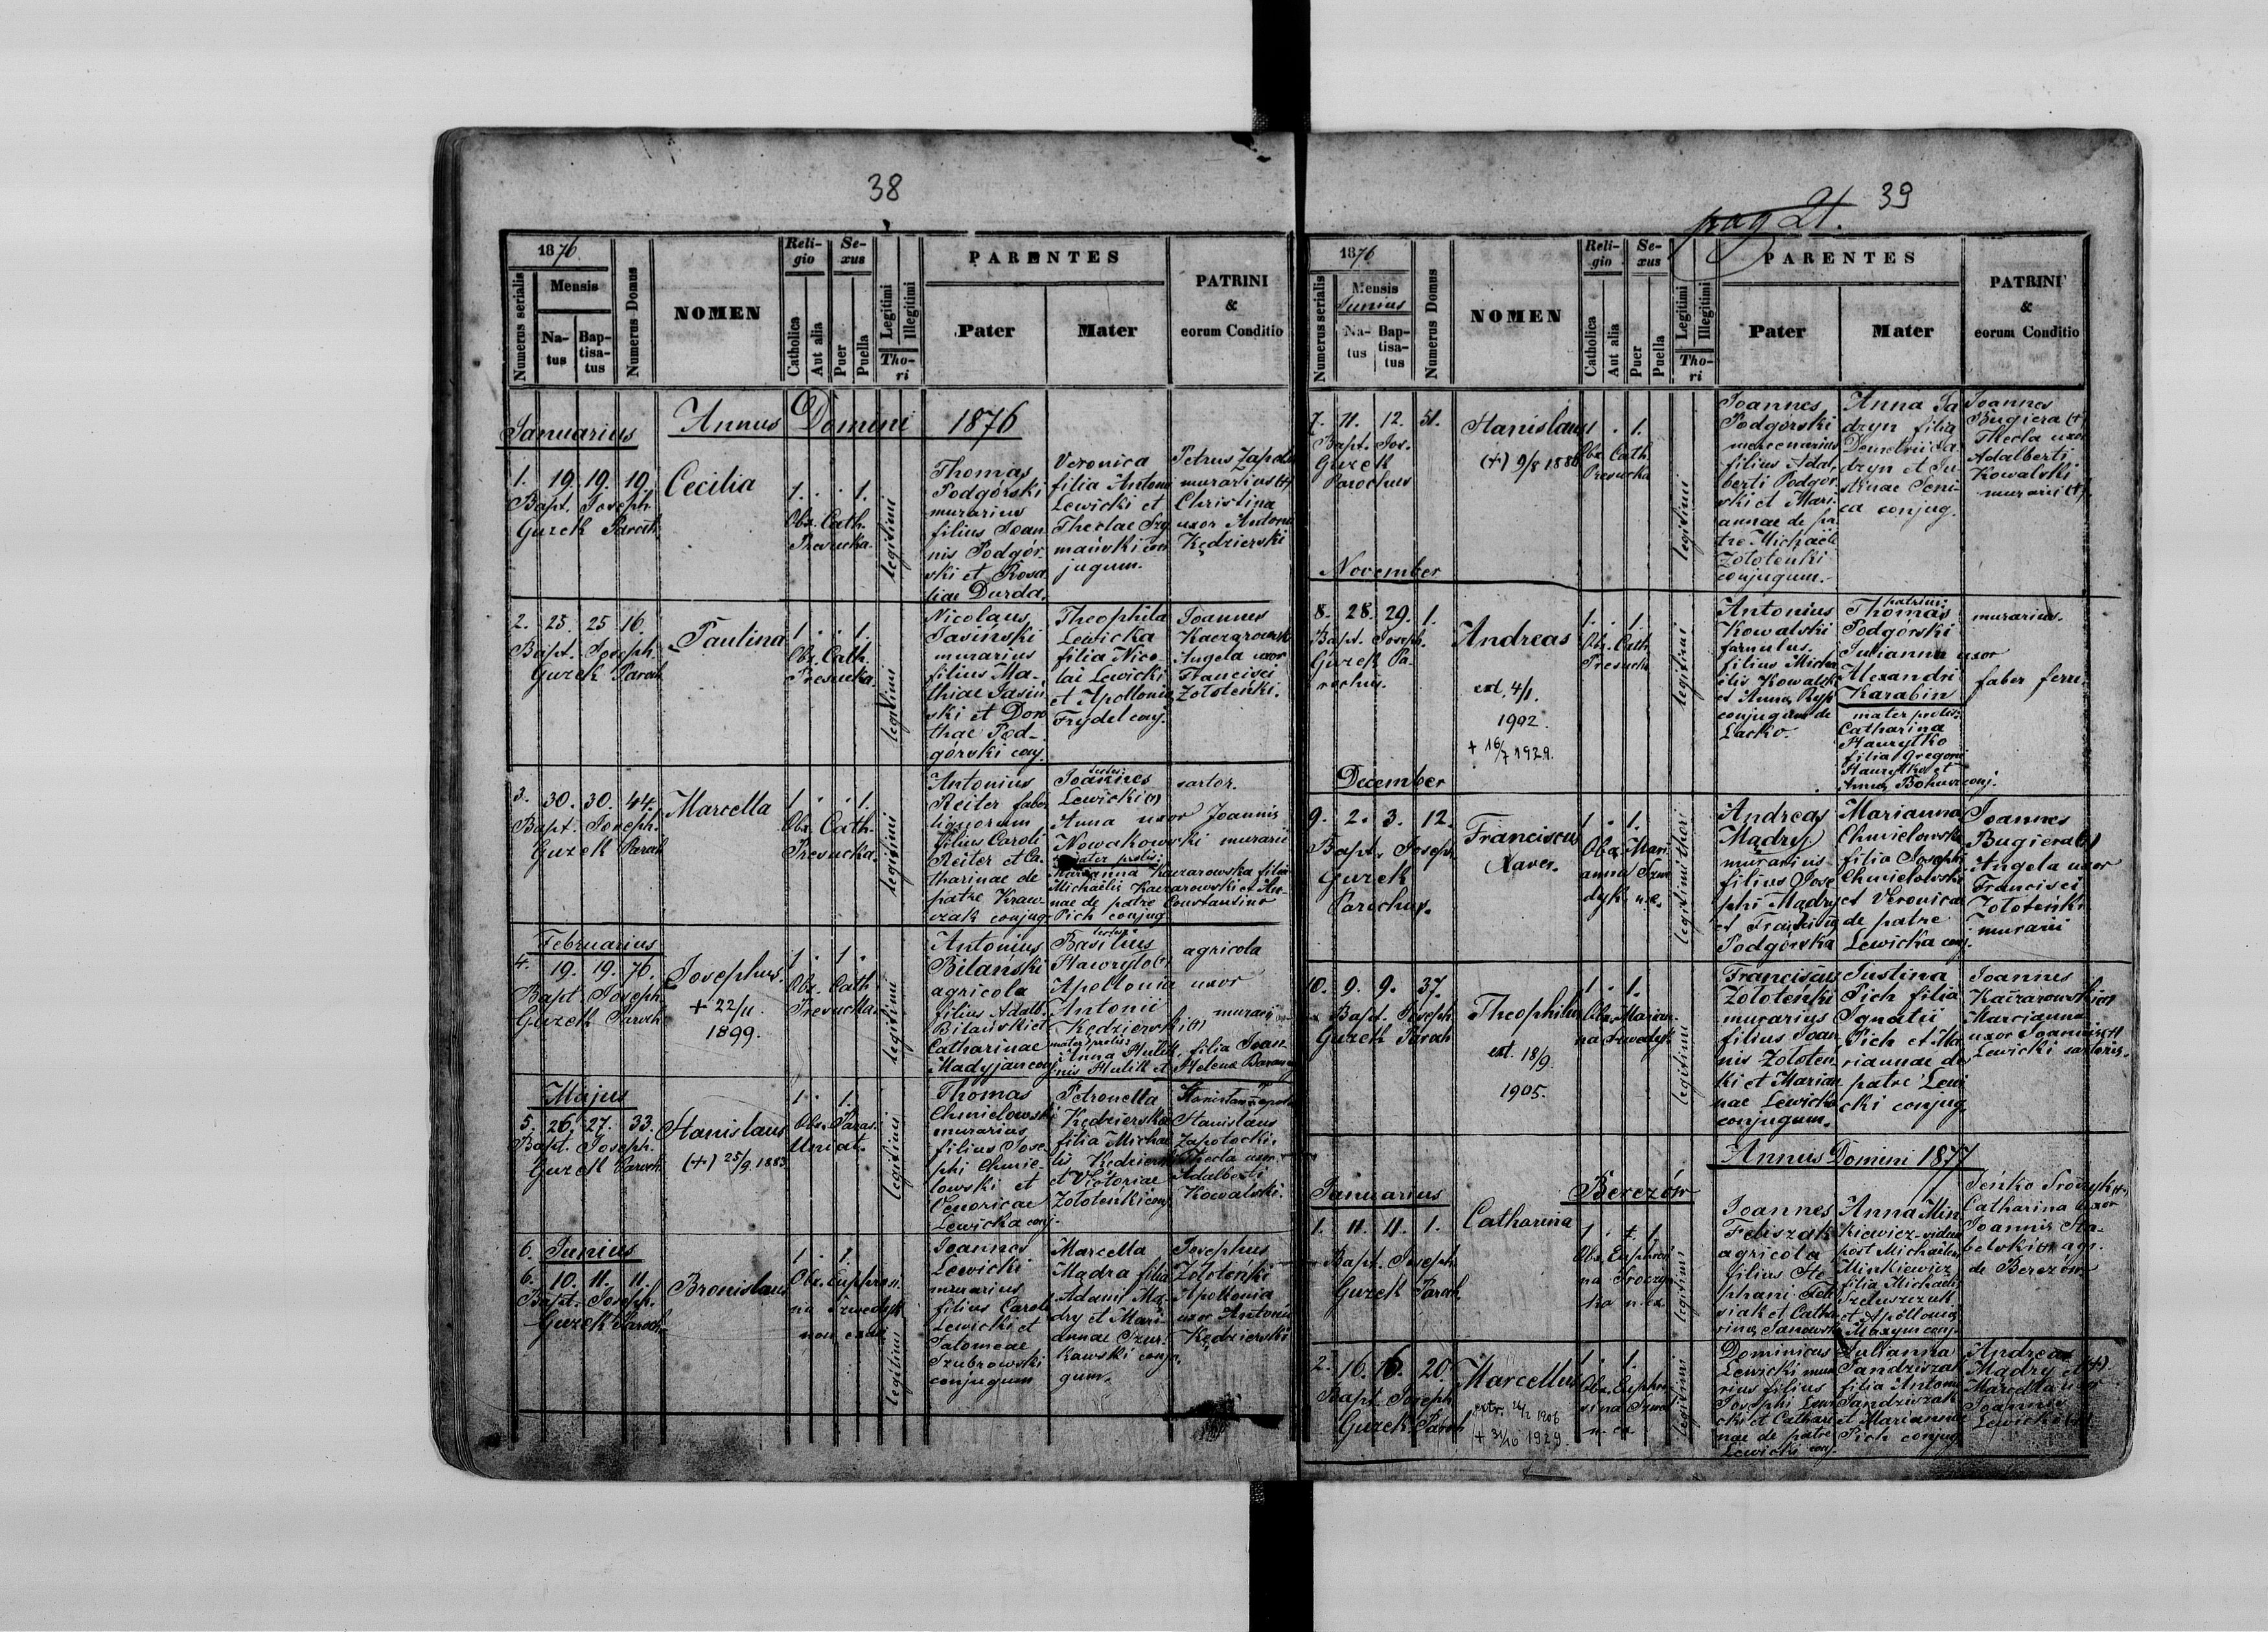 38
1876
Numerus serialis
Mensis
Natus
Baptisatus
Numerus Domus
NOMEN
Religio
Catholica
Aut alia
Sexus
Puer
Puella
Legitimi
Illegitimi
Thori
PARENTES
Pater
Mater
PATRINI
&
eorum Conditio
Annus Domini 1876
Januarius
1. 19. 19. 19.
Bapt. Joseph
Guzek Paroch.
Cecilia
1. . . 1.
Obz. Cath.
Presucka.
legitimi
Thomas
Podgórski
murarius
filius Joan
nis Podgór
ski et Rosa
liae Durda.
Veronica
filia Antonii
Lewicki et
Theclae Szy
mański con
jugum.
Petrus Zapoło
murarius (+)
Christina
uxor Antonii
Kędzierski
2. 25. 25 16.
Bapt. Joseph.
Guzek Paroch
Paulina
1. . . 1.
Obz. Cath.
Presucka
legitimi
Nicolaus
Jasiński
murarius
filius Ma-
thiae Jasiń
ski et Doro
thae Pod-
górski conj.
Theophila
Lewicka
filia Nico
lai Lewicki
et Apollonia
Frydel conj.
Joannes
Kaczarowski
Angela uxor
Francisci
Zołoteńki.
3. 30. 30. 44.
Bapt. Joseph.
Guzek Paroch
Marcella
1. . . 1.
Obz. Cath.
Presucka.
legitimi
Antonius
Reiter faber
lignorum
filius Caroli
Reiter et Ca
tharinae de
patre Kraw
czak conjug
Joannes sartor.
Lewicki (+)
Anna uxor Joannis
Nowakowski murarii
mater prolis:
Marianna Kaczarowska filia
Michaelis Kaczarowski et An
nae de patre Constantino
Pich conjug
Februarius
4. 19. 19. 76.
Bapt. Joseph
Guzek Paroch
Josephus.
+ 22/11
1899.
1. 1.
Obz. Cath
Presucka.
legitimi
Antonius
Bilański
agricola
filius Adalb.
Bilański et
Catharinae
Madyjan conj
Basilius agricola
Hawryło
Apollonia uxor
Antonii murarii
Kędzierski (+)
mater prolis:
Anna Hulik, filia Joan
nis Hulik et Helena
Majus
5. 26. 27. 33.
Bapt. Joseph.
Guzek Paroch.
Stanislaus
(+) 25/9 1883
1. 1.
Obz. Paras.
Uniat.
legitimi
Thomas
Chmielowski
murarius
filius Jose
phi Chmie-
lowski et
Veroricae
Lewicka conj.
Petronella
Kędzierska
filia Michae
lis Kędzierski
et Victoriae
Zołoteńki conj
Stanislaus
Zapotocki
Thecla uxor
Adalberti
Kowalski.
6. Junius
6. 10. 11. 11.
Bapt. Joseph.
Guzek Paroch
Bronislaus
1. 1.
Obz. Euphrosi
na Szwedyk
non exam
legitimi
Joannes
Lewicki
murarius
filius Caroli
Lewicki et
Salomeae
Szubrowski
conjugum
Marcella
Mądra filia
Adami Mą
dry et Mari
annae Szur
kawski conju
gum.
Josephus
Zołoteński
Apollonia
uxor Antonii
Kędzierski
pag 21. 39
1876
Numerus serialis
Mensis
Junius
Natus
Baptisatus
Numerus Domus
NOMEN
Religio
Catholica
Aut alia
Sexus
Puer
Puella
Legitimi
Illegitimi
Thori
PARENTES
Pater
Mater
PATRINI
&
eorum Conditio
7. 11. 12. 51.
Bapt. Jos.
Guzek
Parochus
Stanislaus
(+) 9/8 1880
1. . 1.
Obz. Cath
Presucka
legitimi
Joannes
Podgórski
mercenarius
filius Adal
berti Podgór
ski et Mari
annae de pa
tre Michaele
Zołoteńki
conjugum.
Anna Sa
dzyn filia
Demetrii Sa
dzyn et Ju
stinae Seni
ca conjug.
Joannes
Bugiera (+)
Thecla uxor
Adalberti
Kowalski
murarii (+)
November
8. 28. 29. 1.
Bapt. Joseph.
Guzek Pa
rochus.
Andreas
ext. 4/1
1902.
+ 16/7 1929.
1. . 1.
Obz. Cath
Presucka
legitimi
Antonius
Kowalski
famulus.
filius Micha
elis Kowalski
et Anna Ryp
conjugum de
Lacko.
patrini:
Thomas murarius.
Podgórski
Julianna uxor
Alexandri faber ferri.
Karabin
mater prolis:
Catharina
Hawrytko
filia Gregorii
Hawrytko et
Anna conj.
December
9. 2. 3. 12.
Bapt. Joseph
Guzek
Parochus.
Franciscus
Xaver.
1. . 1.
Obz. Mari
anna Szwe
dyk n.e.
legitimi thori
Andreas
Mądry
murarius
filius Jose
phi Mądry
et Franciscae
Podgórska
Marianna
Chmielowska
filia Josephi
Chmielowski
et Veronicae
de patre
Lewicka conj.
Joannes
Bugiera (+)
Angela uxor
Francisci
Zołoteńki
murarii
10. 9. 9. 37.
Bapt. Joseph
Guzek Paroch
Theophilus
ext. 18/9.
1905.
1. 1.
Obz. Marian
na Szwedyk
legitimi
Franciscus
Zołoteńki
murarius
filius Joan
nis Zołoteń
ki et Marian
nae Lewicki
conjugum.
Justina
Pich filia
Ignatii
Pich et Ma
riannae de
patre Lewi
cki conjug.
Joannes
Kaczarowski (+)
Marcianna
uxor Joannis (+)
Lewicki sartoris.
Annus Domini 1877
Berezów
Januarius
1. 11. 11. 1.
Bapt. Joseph
Guzek Paroch
Catharina
1. + 1.
Obz. Euphrosi
na Froczy
ka n. ex.
legitimi
Joannes
Feliszak
agricola
filius Ste
phani Feli
siak et Catha
rina Janowska
Anna Min
kiewicz vidua
post Michaelem
Minkiewicz
filia Michaelis
et Apollonia
Maxym conj.
Jenko
Catharina uxor
Joannis
agr.
de Berezów
2. 16. 16. 20.
Bapt. Joseph
Guzek Paroch
Marcellus
extr. 24/2 1906
+ 31/10 1929.
1. 1.
Obz. Euphro
sina Szwed
n. ex
legitimi
Dominicus
Lewicki mura
rius filius
Josephi Lewi
cki et Cathari
nae de patre
Lewicki conj.
Julianna
Jandziszak
filia Antonii
Jandziszak
et Marianna
Pich conjug
Andreas
Mądry (+)
Marcella uxor
Joannis
Lewicki (+)